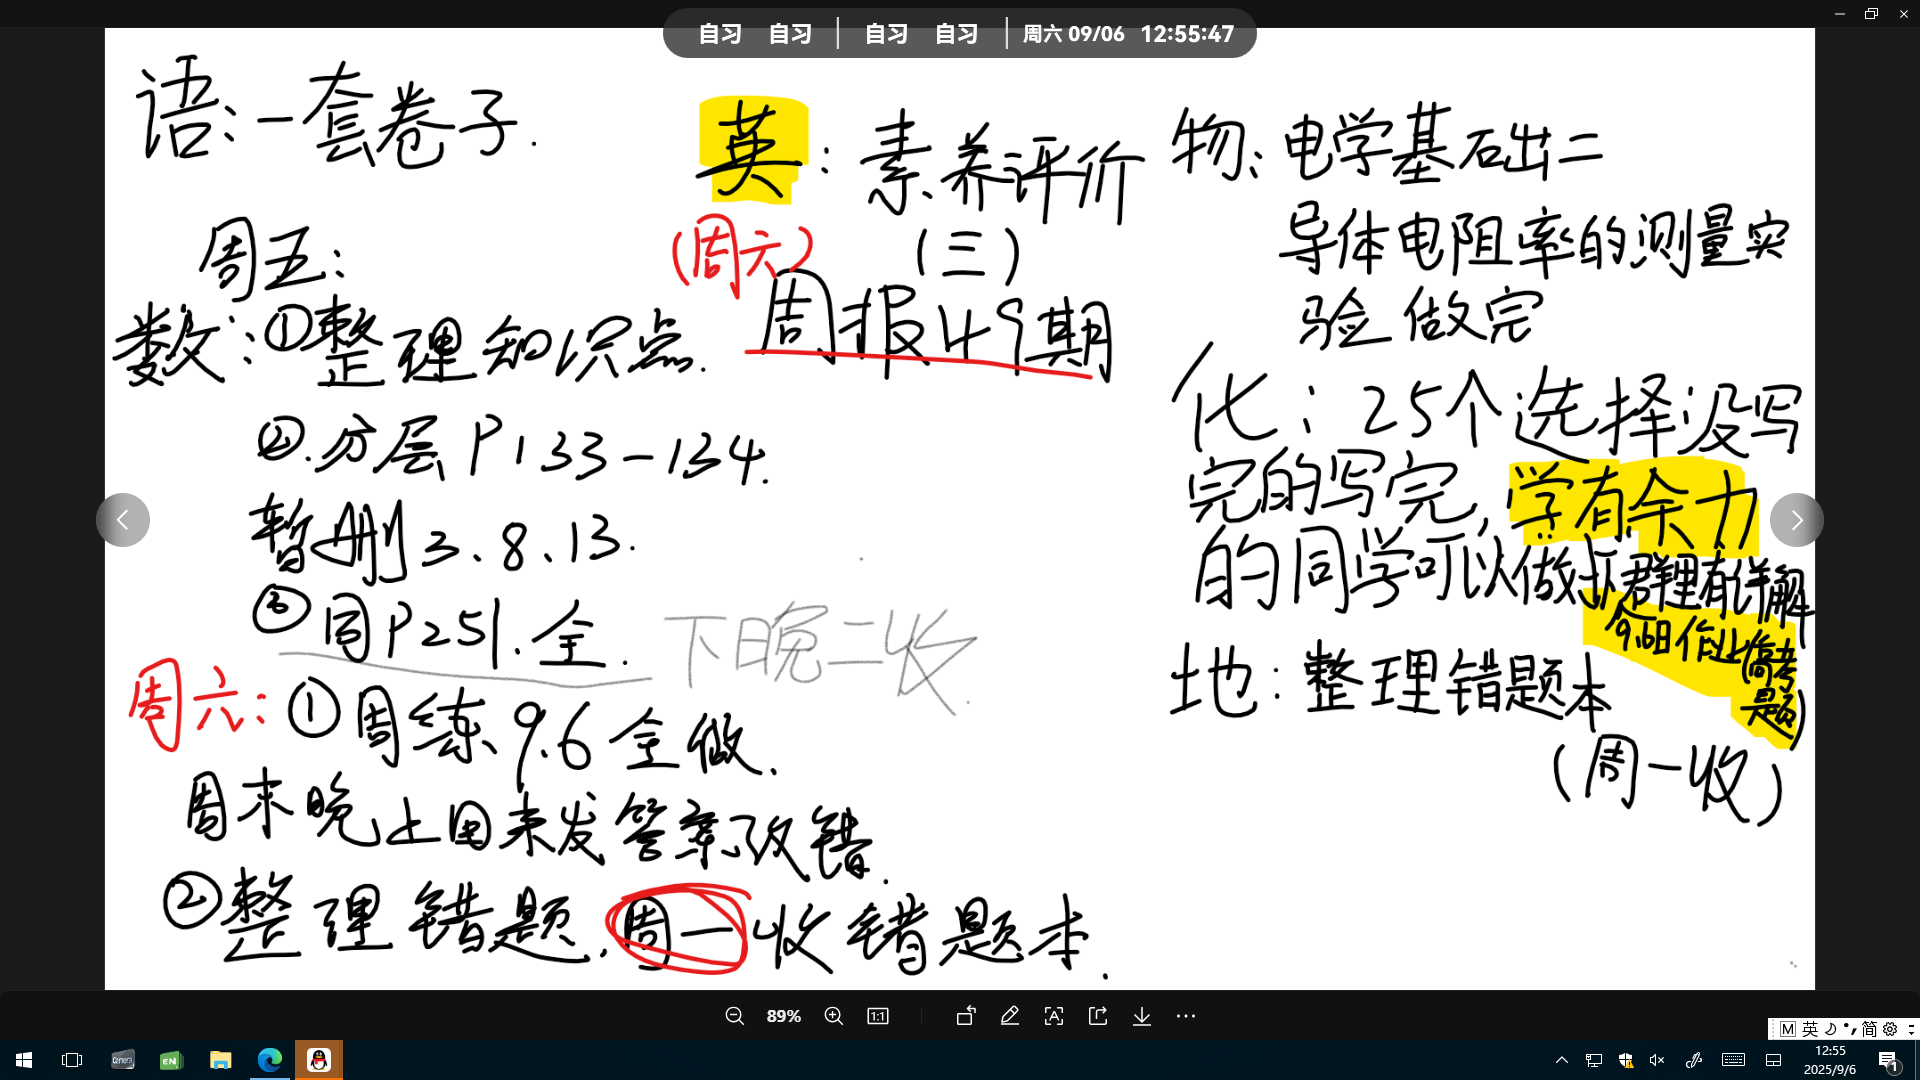 自习 自习 | 自习 自习 | 周六 09/06 12:55:47
语:一套卷子.
周五:
数:①整理知识点.
②.分层P133-134.
暂删3、8、13.
③同P251.全.
下日晚二收.
周六:①周练9.6全做.
周末晚上回来发答案改错.
②整理错题,周一收错题本.
英:素养评价
(三)
(周六)
周报49期
物:电学基础出二
导体电阻率的测量实
验做完
化:25个选择没写
完的写完,学有余力
的同学可以做
群里有详解
9.6日作业(高考
题)
地:整理错题本
(周一收)
89%
1:1
M 英 简
12:55
2025/9/6
Camera
EN
1